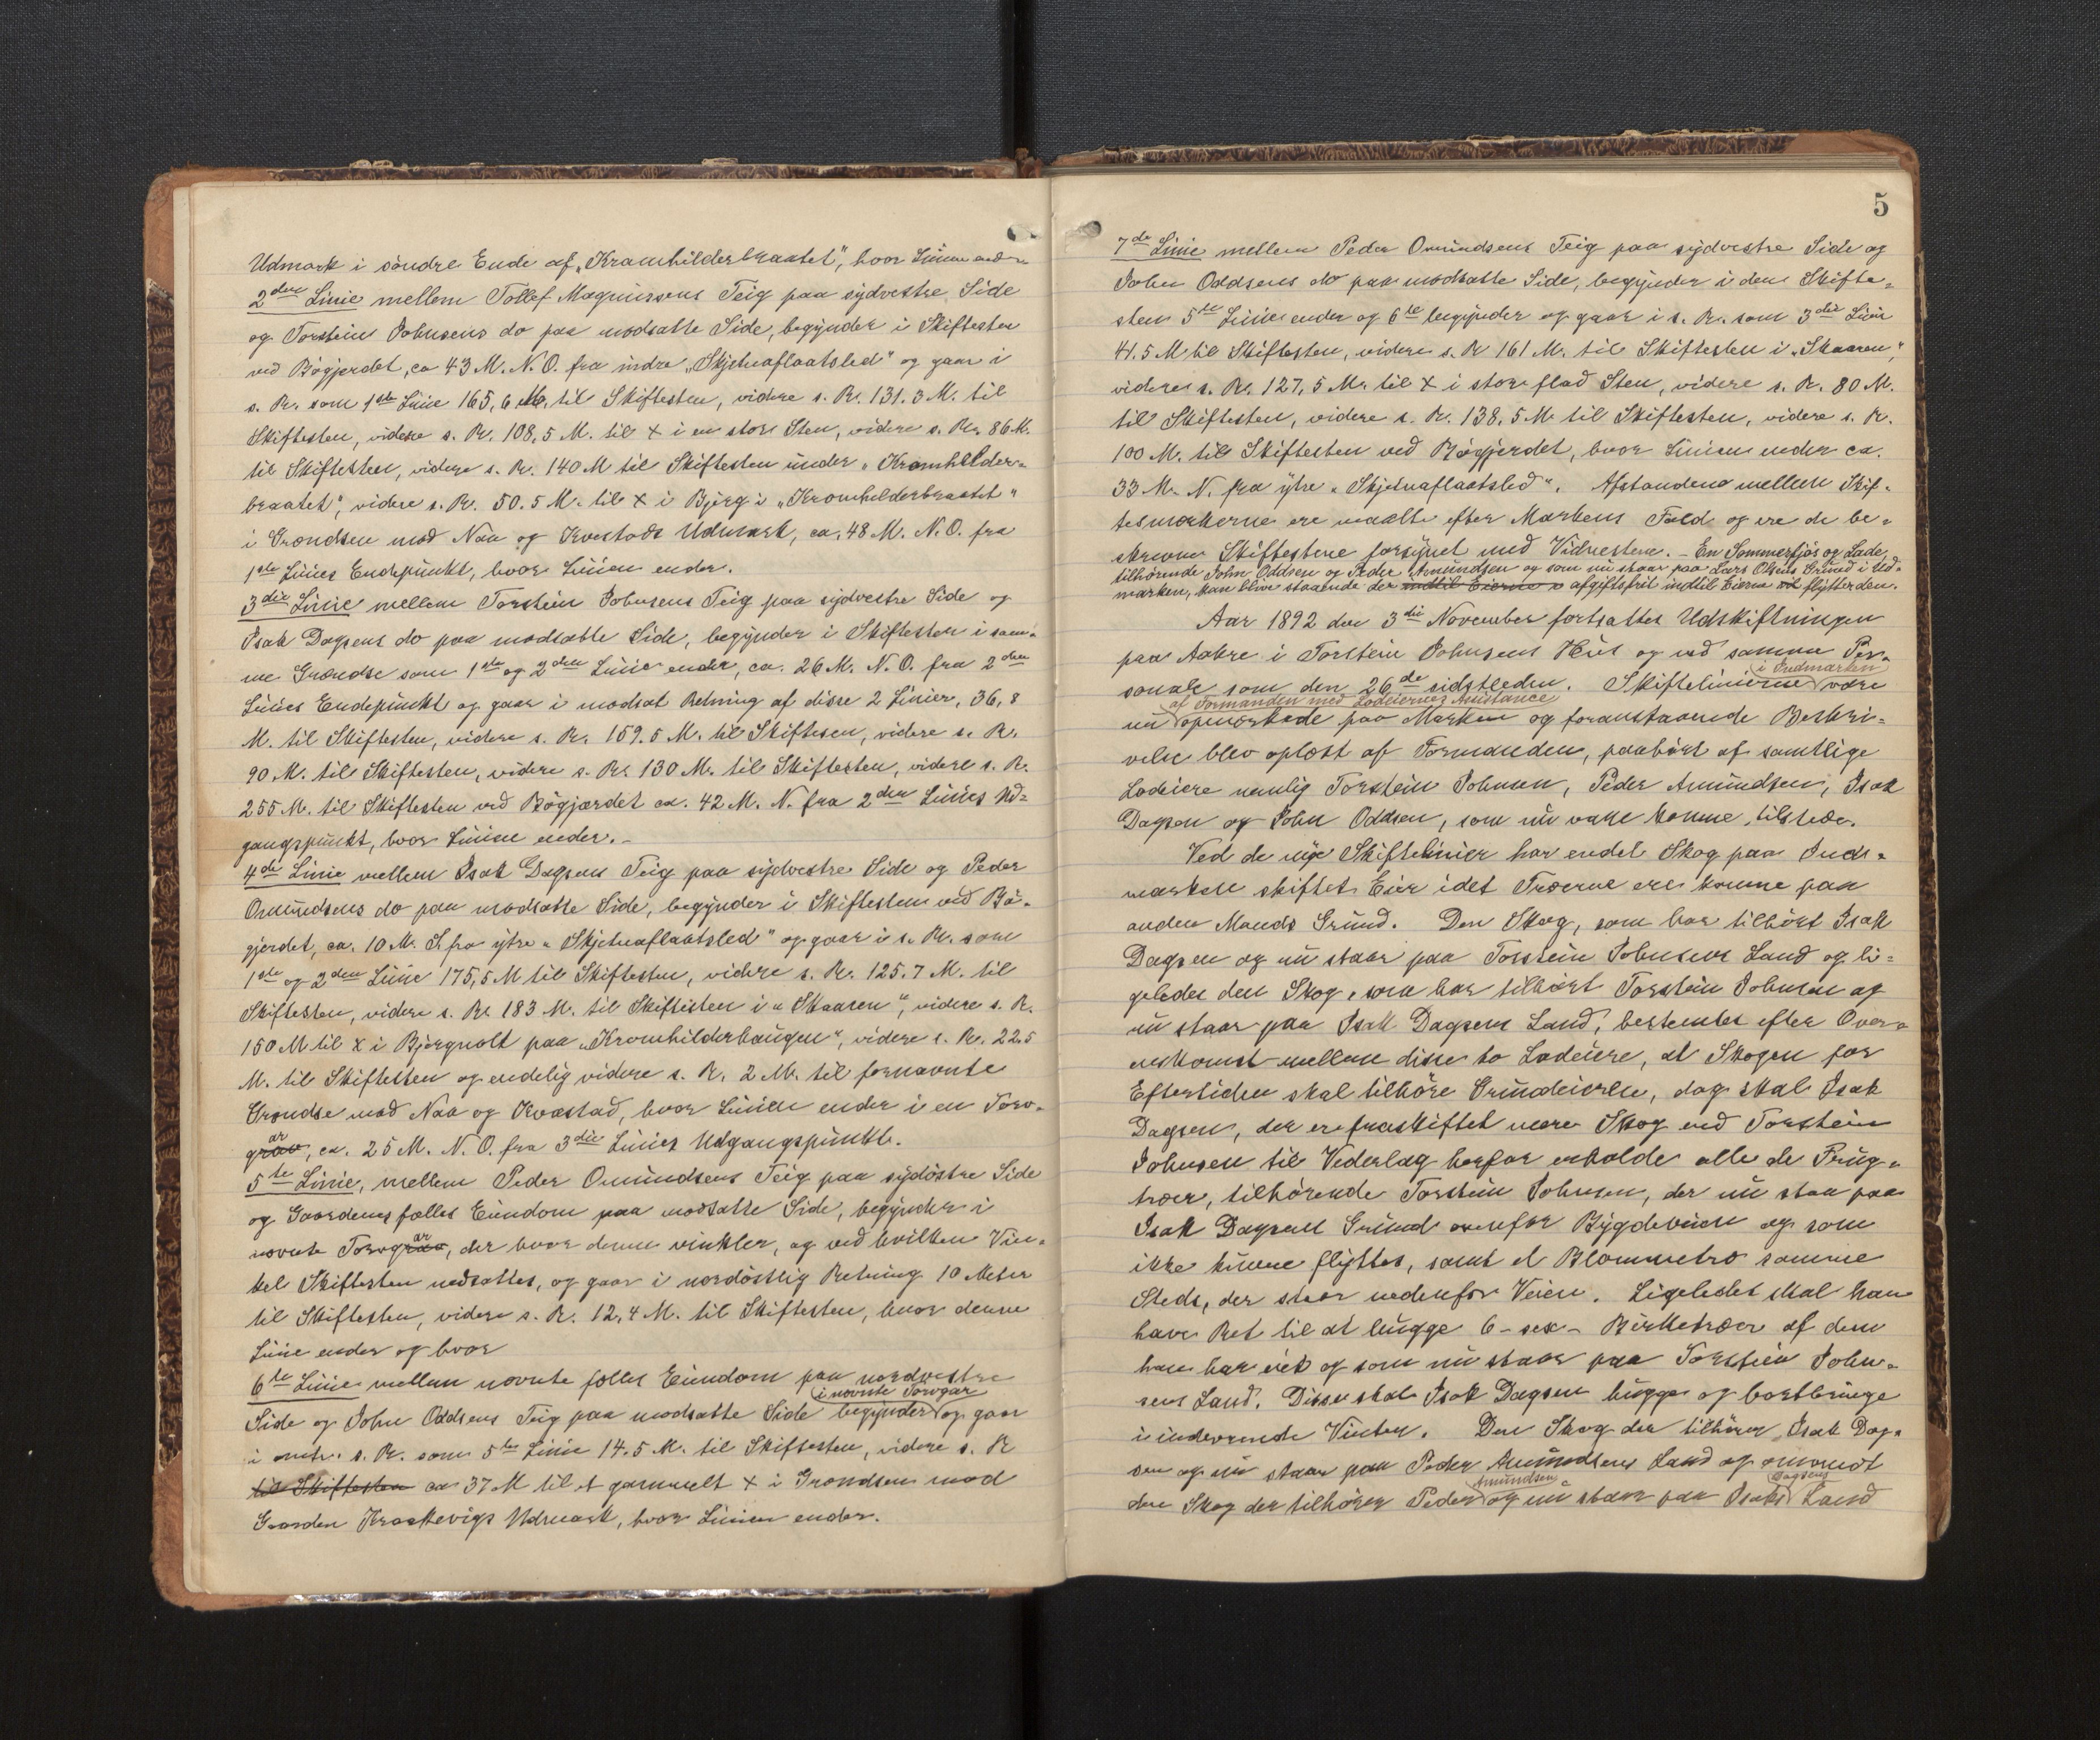 Udmark i söndre Ende af „Kramhilderbraatet", hvor Linien ender
2den Linie mellem Tollef Magnussens Teig paa sydvestre Side
og Torstein Johnsens do paa modsatte Side, begynder i Skiftesten
ved Bögjerdet, ca 43 M. N. O. fra indre „Skjetneflaatsled" og gaar i
s. R. som 1ste Linie 165,6 M. til Skiftesten, videre s. R. 131.3 M. til
Skiftesten, videre s. R. 108,5 M. til x i en stor Sten, videre s. R. 86 M.
til Skiftesten, videre s. R. 140 M til Skiftesten under „Kramhilder-
braatet", videre s. R. 50.5 M. til x i Bjerg i „Kramhilderbraatet"
i Grændsen mod Naa og Kvestads Udmark, ca. 48 M. N. O. fra
1ste Linies Endepunkt, hvor Linien ender.
3die Linie mellem Torstein Johnsens Teig paa sydvestre Side og
Isak Dagsens do paa modsatte Side, begynder i Skiftesten i sam-
me Grændse som 1ste og 2den Linie ender, ca. 26 M. N. O. fra 2den
Linies Endepunkt og gaar i modsat Retning af disse 2 Linier, 36,8
M. til Skiftesten, videre s. R. 159.5 M. til Skiftesen, videre s. R.
90 M. til Skiftesten, videre s. R. 130 M. til Skiftesten, videre s. R.
255 M. til Skiftesten ved Bögjærdet ca. 42 M. N. fra 2den Linies Ud-
gangspunkt, hvor Linien ender.-
4de Linie mellem Isak Dagsens Teig paa sydvestre Side og Peder
Omundsens do paa modsatte Side, begynder i Skiftesten ved Bö-
gjerdet, ca. 10 M. S. fra ytre „Skjetneflaatsled" og gaar i s. R. som
1ste og 2den Linie 175,5 M til Skiftesten, videre s. R. 125.7 M. til
Skiftesten, videre s. R. 183 M. til Skiftesten i „Skaaren", videre s. R.
150 M til x i Bjergnolt paa „Kramhilderhaugen", videre s. R. 22.5
M. til Skiftesten og endelig videre s. R. 2 M. til fornævnte
Grændse mod Naa og Kvæstad, hvor Linien ender i en Torv-
ar
grav, ca. 25 M. N. O. fra 3die Linies Udgangspunkt.
5te Linie, mellem Peder Omundsens Teig paa sydöstre Side
og Gaardenes fælles Eiendom paa modsatte Side, begynder i
ar
nævnte Torvgrav, der hvor denne vinkler, og ved hvilken Vin-
kel Skiftesten nedsættes, og gaar i nordöstlig Retning 10 Meter
til Skiftesten, videre s. R. 12,4 M. til Skiftesten, hvor denne
Linie ender og hvor
6te Linie mellem nævnte fælles Eiendom paa nordvestre
i nævnte Torvgar
Side og John Oddsens Teig paa modsatte Side begynder og gaar
i s. R. som 5te Linie 14.5 M. til Skiftesten, videre s. R
til Skiftesten ca 37 M til et gammelt x i Grændsen mod
Gaarden Kraakevigs Udmark, hvor Linien ender.
5
7de Linie mellem Peder Omundsens Teig paa sydvestre Side og
John Oddsens do paa modsatte Side, begynder i den Skifte-
sten 5te Linie ender og 6te begynder og gaar i s. R. som 3die Linie
41.5 M til Skiftesten, videre s. R 161 M. til Skiftesten i „Skaaren",
videre s. R. 127,5 M. til x i stor flad Sten, videre s. R. 80 M.
til Skiftesten, videre s. R. 138,5 M til Skiftesten, videre s. R.
100 M. til Skiftesten ved Bögjerdet, hvor Linien ender ca.
33 M. N. fra ytre „Skjetneflaatsled". Afstandene mellem Skif-
tesmærkerne ere maalte efter Markens Fald og ere de be-
skrevne Skiftestene forsynet med Vidnestene. - En Sommerfjös og Lade,
tilhörende John Oddsen og Peder Amundsen og som nu staar paa Lars Olsens Grund i Ud-
marken, kan blive staaende der indtil Eierne afgiftsfrit indtil Eierne flytter den.
Aar 1892 den 3die November fortsattes Udskiftningen
paa Aakre i Torstein Johnsens Hus og ved samme Per-
i Indmarken
sonale som den 26de sidstleden. Skiftelinierne være
af Formanden med Lodeiernes Assistance
nu opmærkede paa Marken og foranstaaende Beskri-
velse blev oplæst af Formanden, paahört af samtlige
Lodeiere nemlig Torstein Johnsen, Peder Amundsen, Isak
Dagsen og John Oddsen, som nu vare komne tilstede.
Ved de nye Skiftelinier har endel Skog paa Ind-
marken skiftet Eier idet Træerne ere komne paa
anden Mands Grund. Den Skog, som har tilhört Isak
Dagsen og nu staar paa Torstein Johnsens Land og li-
geledes den Skog, som har tilhört Torstein Johnsen og
nu staar paa Isak Dagsens Land, bestemtes efter Over-
enskomst mellem disse to Lodeiere, at Skogen for
Eftertiden skal tilhöre Grundeieren, dog skal Isak
Dagsen, der er fraskiftet mere Skog end Torstein
Johnsen til Vederlag herfor erholde alle de Frug-
træer, tilhörende Torstein Johnsen, der nu staa paa
Isak Dagsens Grund ovenfor Bygdeveien og som
ikke kunne flyttes, samt et Blommetræ samme
Steds, der staar nedenfor Veien. Ligeledes skal han
have Ret til at hugge 6 - sex - Birketræer af dem
han har eiet og som nu staar paa Torstein John-
sens Land. Disse skal Isak Dagsen hugge og bortbringe
i indeværende Vinter. Den Skog der tilhörer Isak Dag-
sen og nu staar paa Peder Amundsens Land og omvendt
Amundsen Dagsens
den Skog der tilhörer Peder og nu staar paa Isaks Land